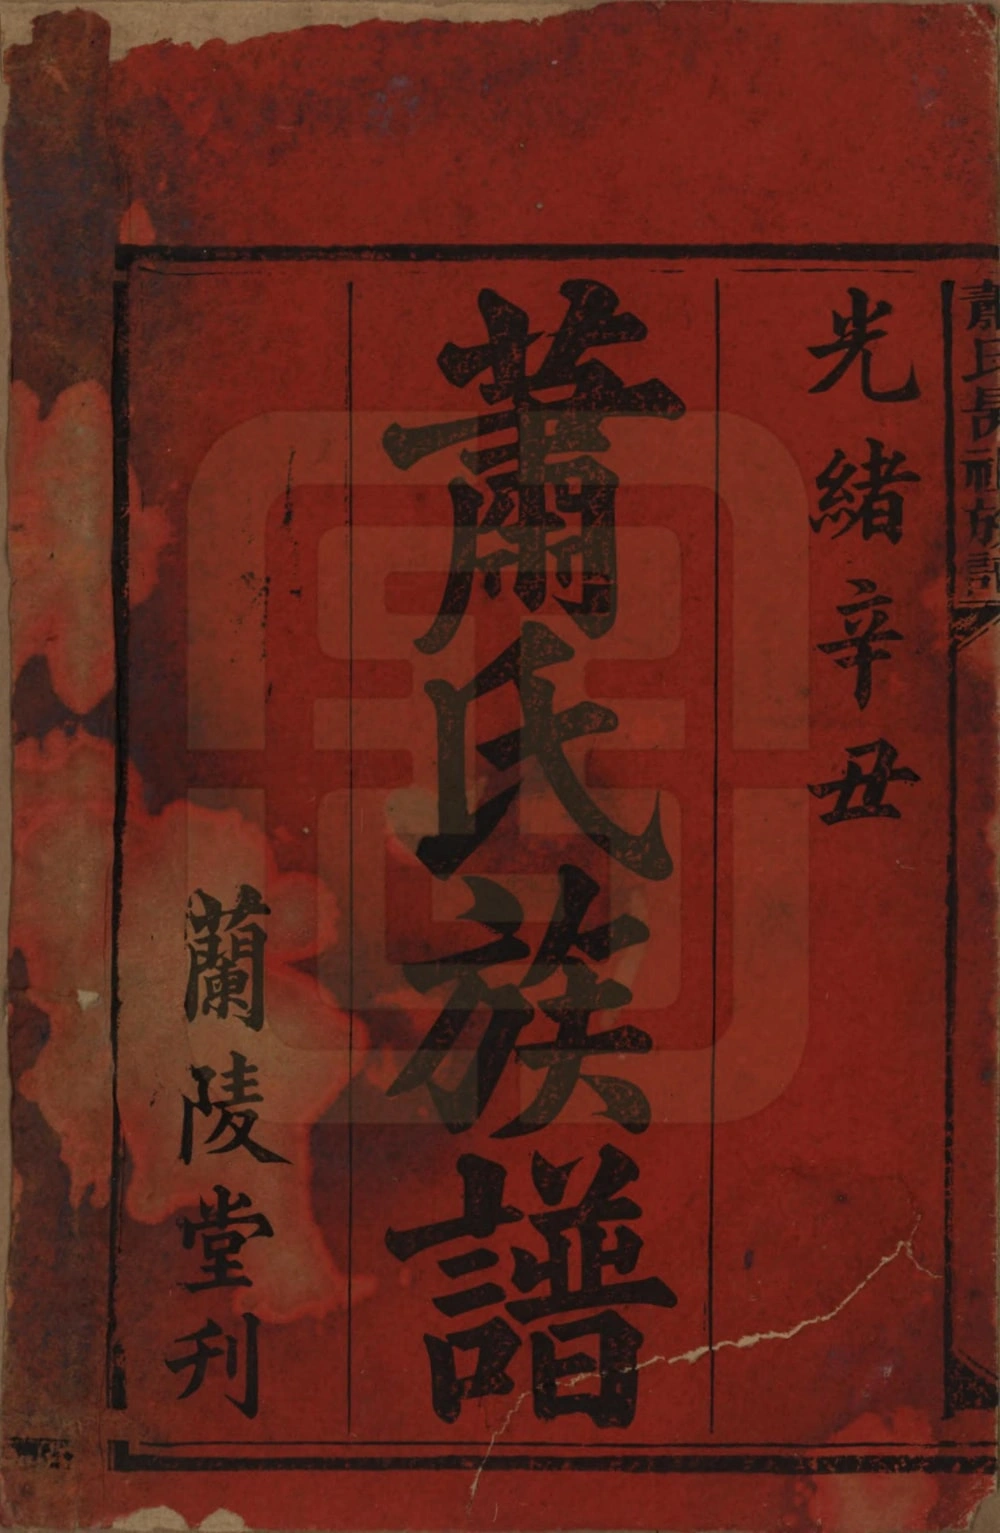 蕭氏長祖族譜
光緒辛丑
蕭氏族譜
蘭陵堂刊